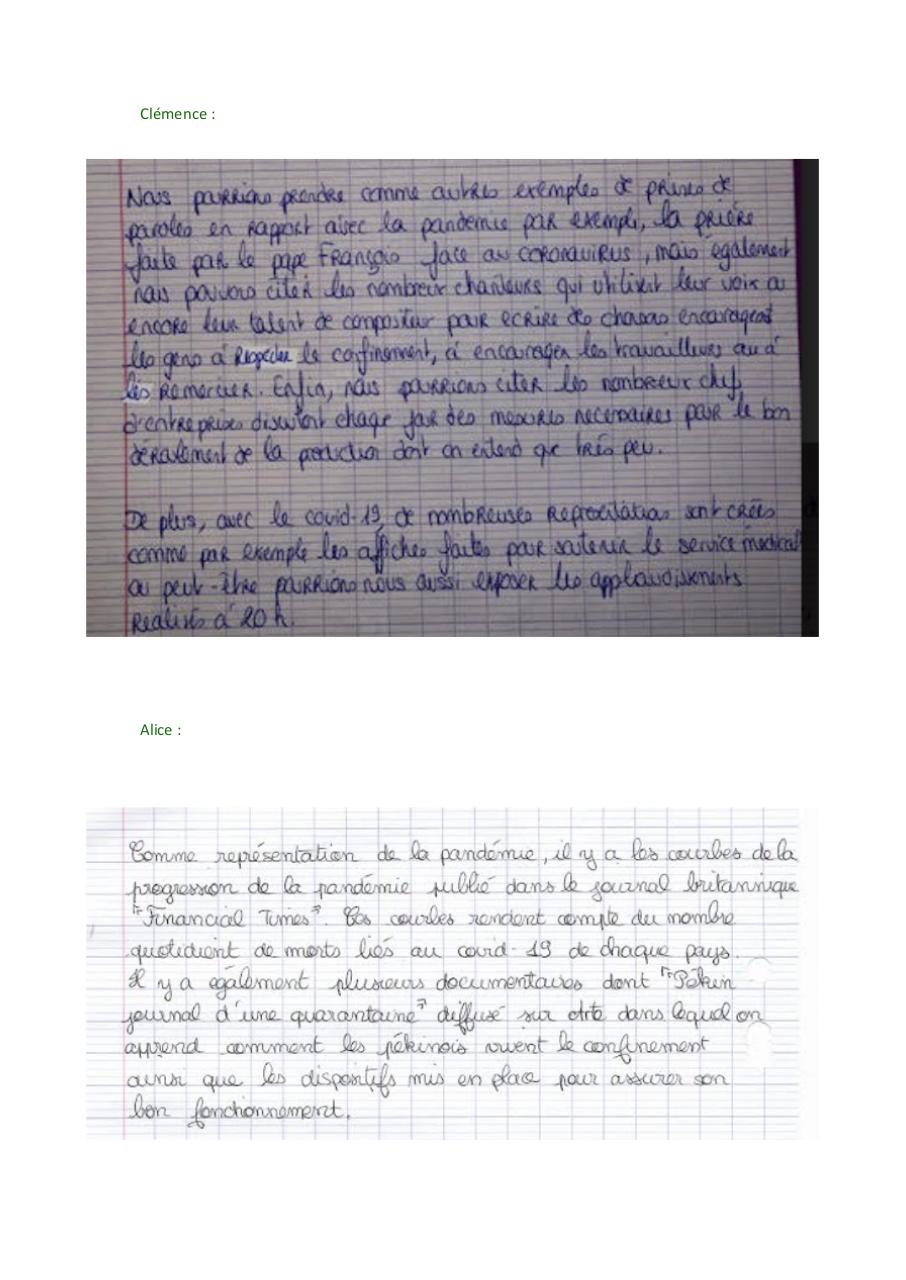 Clémence :
Nous pourrions prendre comme autres exemples de prises de
paroles en rapport avec la pandemie par exemple, la prière
faite par le pape François face au coronavirus, mais également
nous pouvons citer les nombreux chanteurs qui utilisent leur voix ou
encore leur talent de compositeur pour ecrire des chansons encourageant
les gens à respecter le confinement, à encourager les travailleurs ou à
les remercier. Enfin, nous pourrions citer les nombreux chefs
d'entreprises disutant chaque jour des mesures necessaires pour le bon
déroulement de la production dont on entend que très peu.
De plus, avec le covid-19, de nombreuses représentations sont créés
comme par exemple les affiches faites pour soutenir le service médical
ou peut-être pourrions nous aussi exposer les applaudissements
réalisés à 20 h.
Alice :
Comme représentation de la pandémie, il y a les courbes de la
progression de la pandémie publié dans le journal britannique
"Financial Times". Ces courbes rendent compte du nombre
quotidient de morts liés au covid-19 de chaque pays.
Il y a également plusieurs documentaires dont "Pékin
journal d'une quarantaine" diffusé sur Arte dans lequel on
apprend comment les pékinois vivent le confinement
ainsi que les dispositifs mis en place pour assurer son
bon fonctionnement.